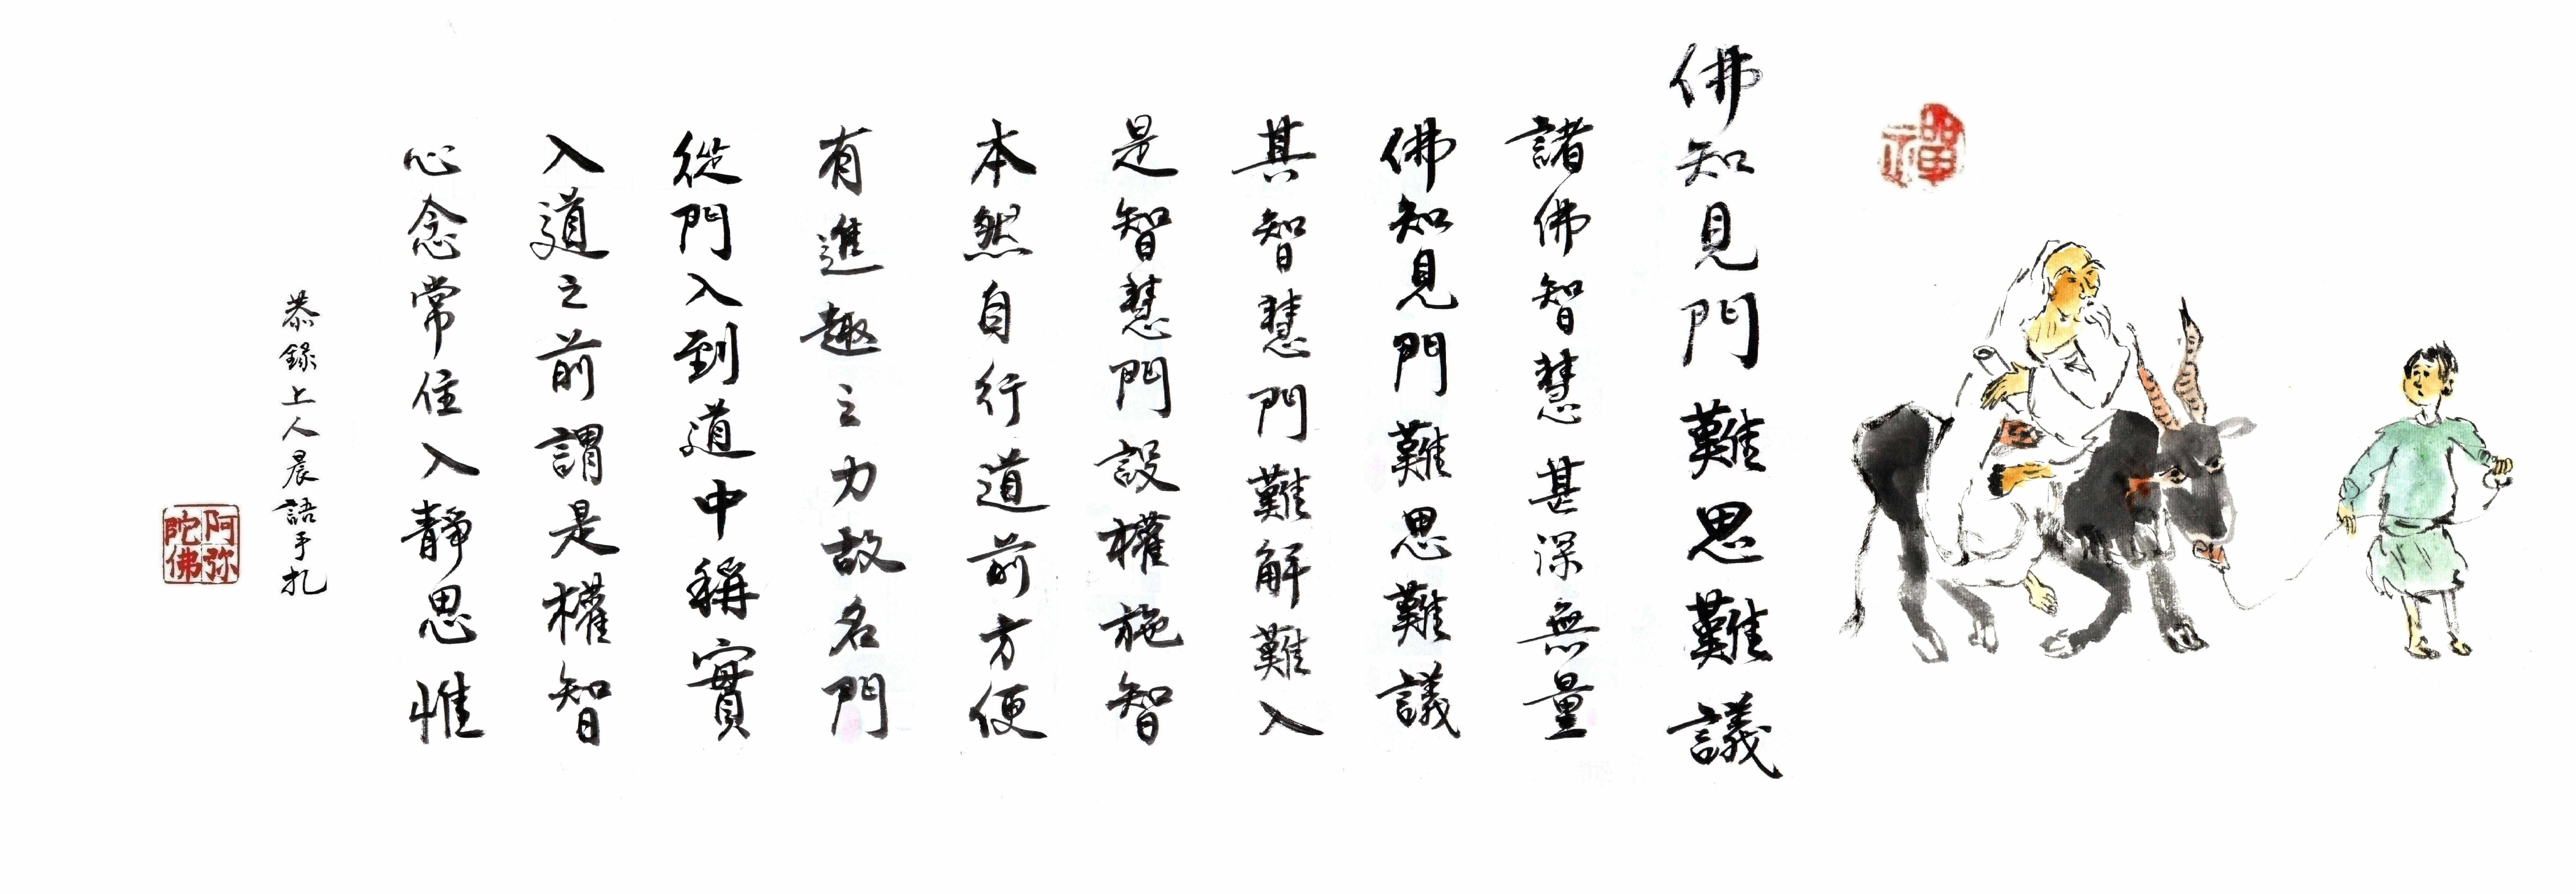 禪
佛知見門難思難議
諸佛智慧甚深無量
佛知見門難思難議
其智慧門難解難入
是智慧門設權施智
本然自行道前方便
有進趣之力故名門
從門入到道中稱實
入道之前謂是權智
心念常住入靜思惟
恭錄上人晨語手札
阿弥陀佛